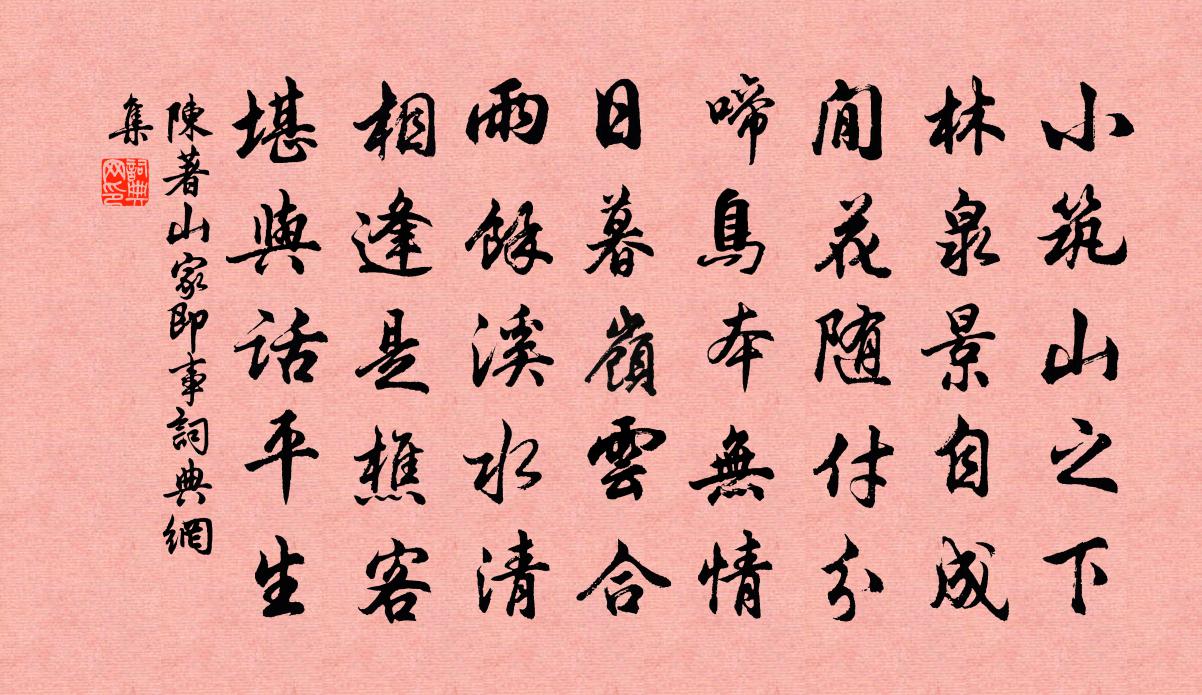 小筑山之下
林泉景自成
閒花随付分
啼鳥本無情
日暮嶺雲合
雨餘溪水清
相逢是樵客
堪與話平生
陳著山家即事詞典網
集
詞典
网印